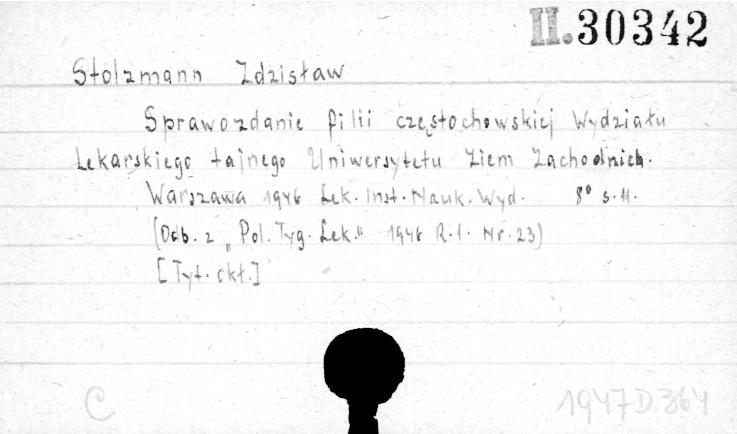 II.30342
Stolzmann Zdzisław
Sprawozdanie filii częstochowskiej Wydziału
Lekarskiego tajnego Uniwersytetu Ziem Zachodnich.
Warszawa 1946 Lek. Inst. Nauk. Wyd. 8° s. 11.
(Odb. z „Pol. Tyg. Lek." 1946 R.1. Nr. 23)
[Tyt. okł.]
C 1947 D 364